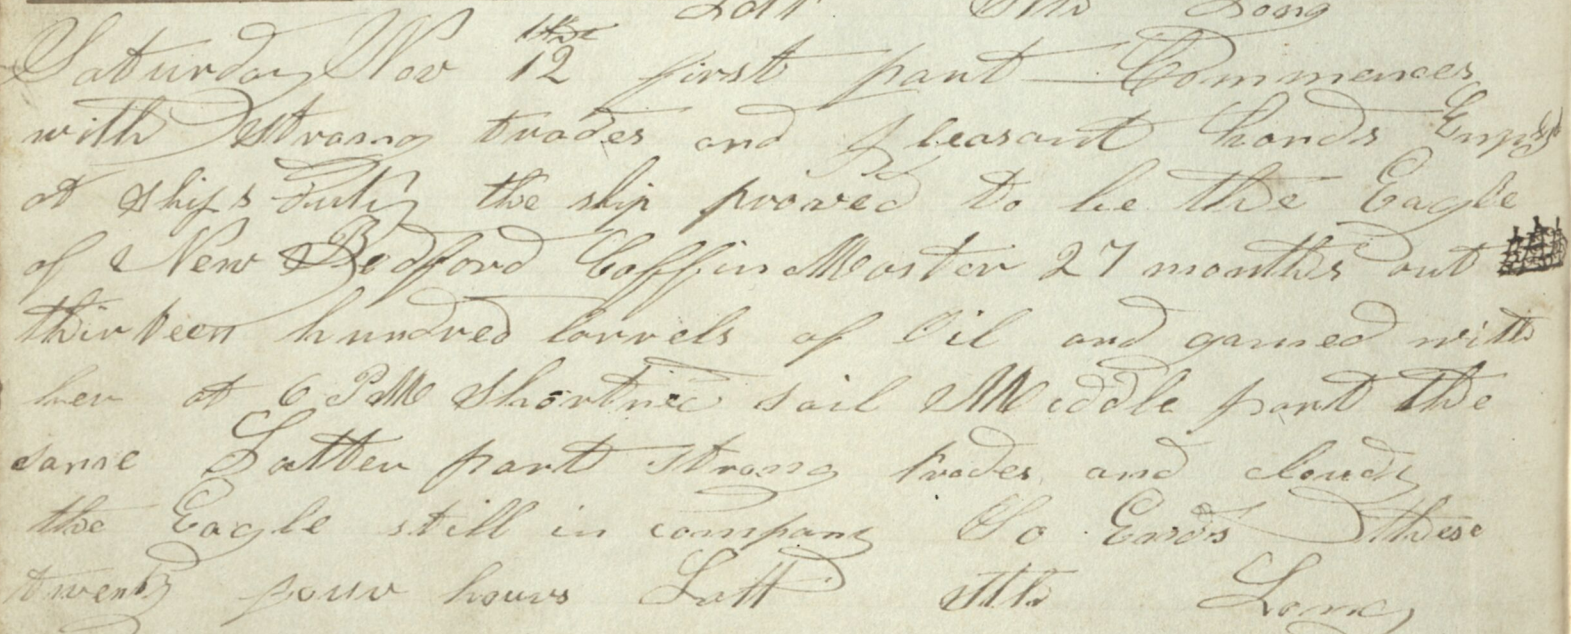 Latt Sth Long
Saturday Nov 12 first part Commences
with strong trades and pleasant hands Empd
at ships duty the ship proved to be the Eagle
of New Bedford Coffin Master 27 months out
thirteen hundred barrels of Oil and gamed with
her at 6 PM Shortned sail Middle part the
same Latter part strong trades and cloudy
the Eagle still in company So Ends these
twenty four hours Latt Sth Long